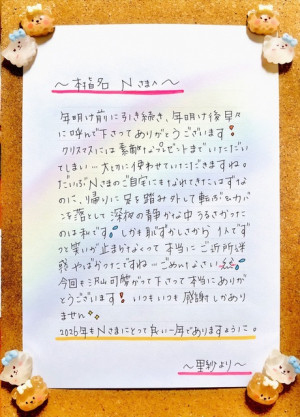 ～本指名 Nさまへ～
年明け前に引き続き、年明け後早々
に呼んで下さってありがとうございます!
クリスマスには素敵なプレゼントまでいただい
てしまい…大切に使わせていただきますね。
だいぶNさまのご自宅にもなれてきたはずな
のに、帰りに足を踏み外して転ぶもカバ
ンを落として深夜の静かな中うるさかった
のは私です。しかも恥ずかしいから1人でず
っと笑いが止まらなくって本当にご近所迷
惑やばかったですね…ごめんなさい
今回も
下さって本当にありが
とうございます!いつもいつも感謝しかあり
ません
2026年もNさまにとって良い一年でありますように。
～里紗より～